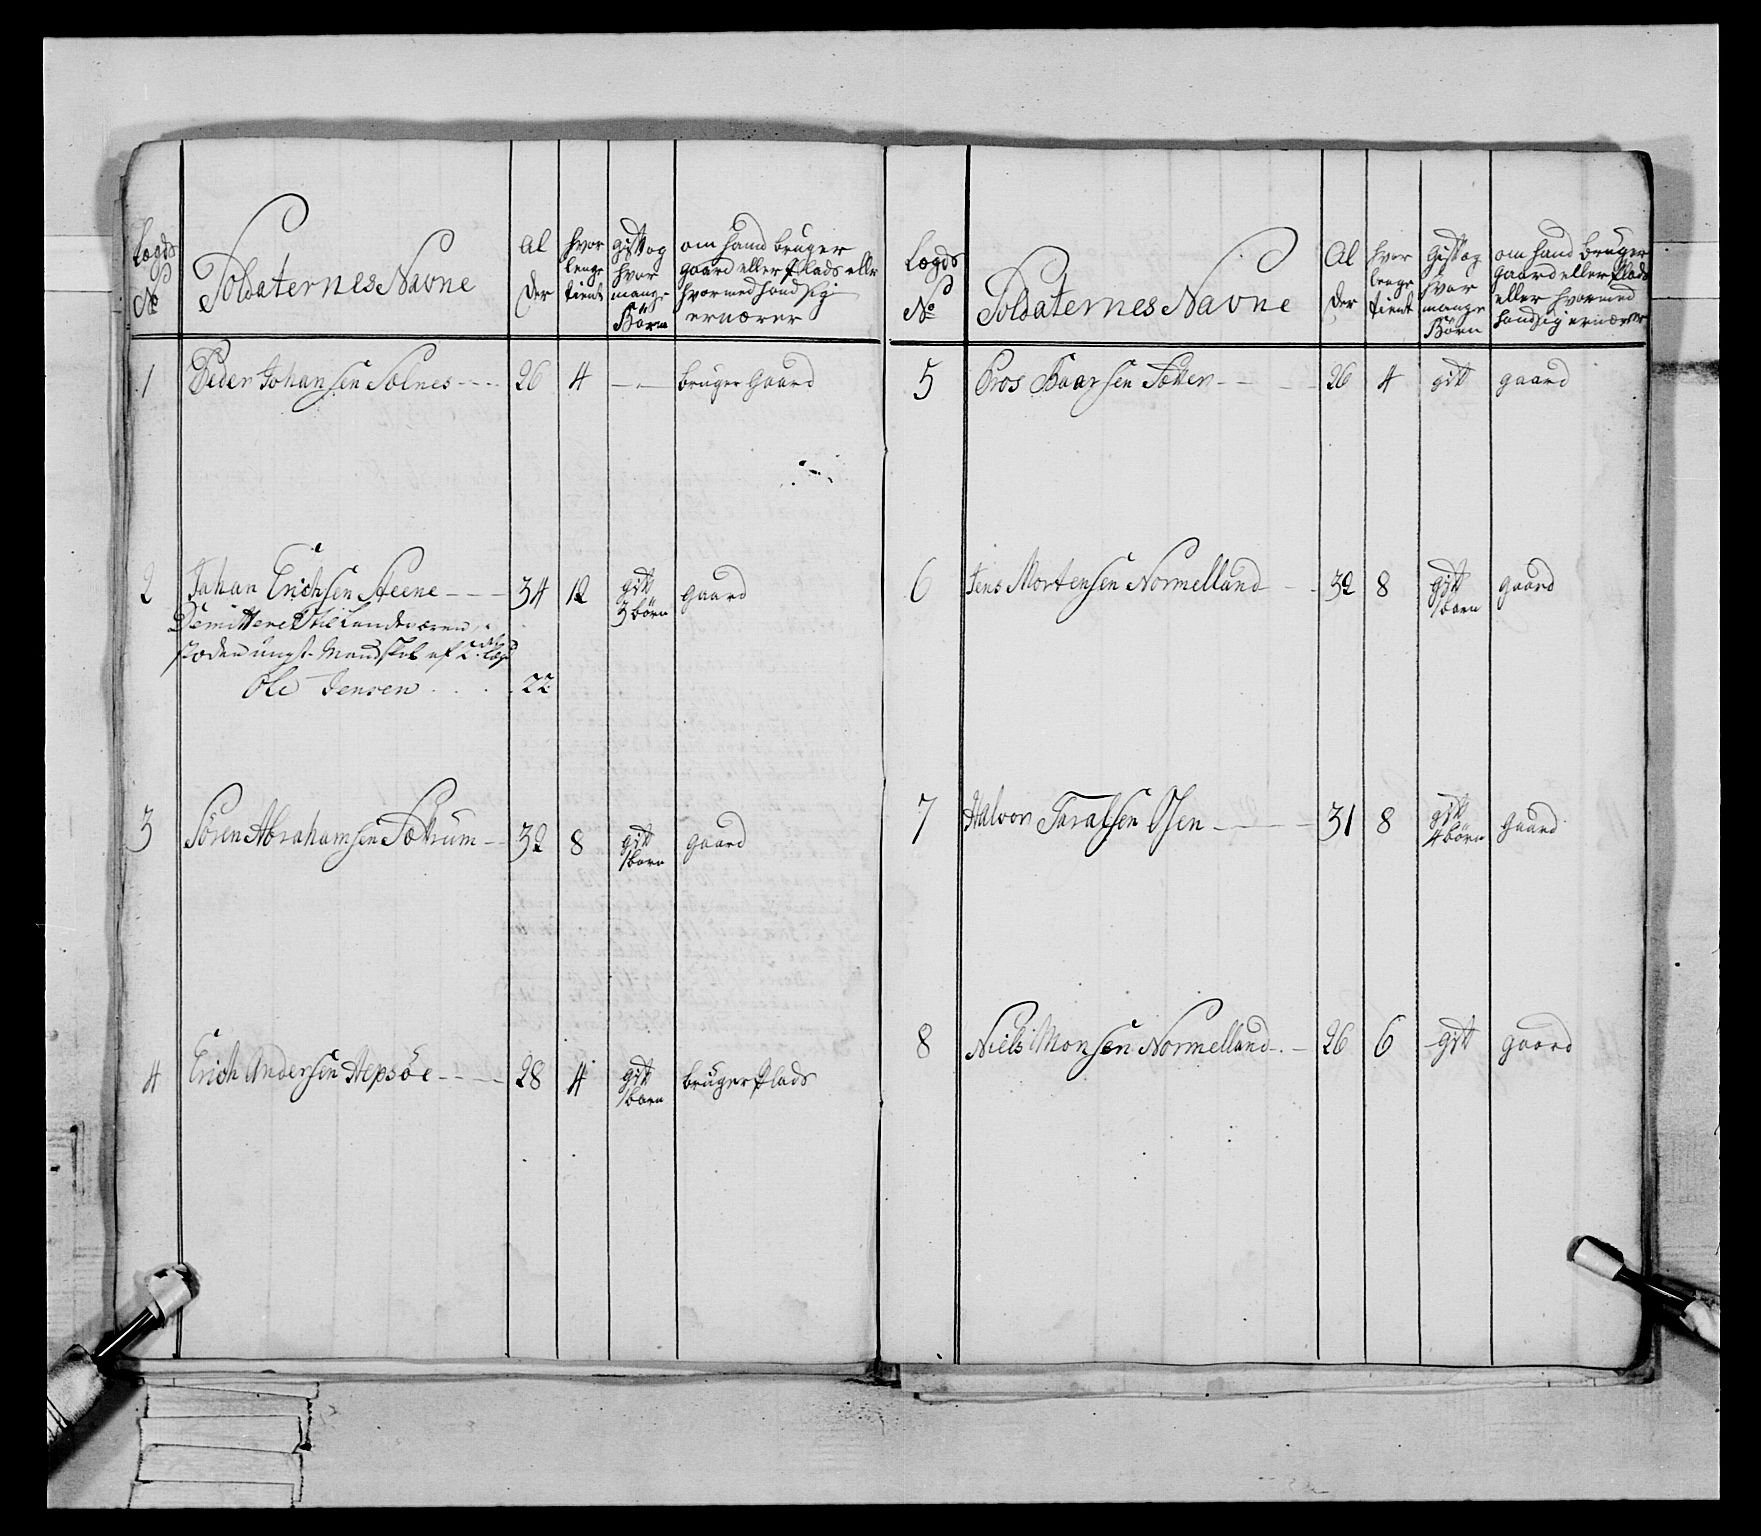 Lægds No
Soldaternes Navne
Al der
hvor lenge tient
gift og hvor mange Börn
om hand bruger gaard eller Plads eller hvormed hand sig ernærer
1 Peder Johansen Solnes 26 4 bruger gaard
2 Johan Erichsen Steene 34 12 gift 3 börn gaard
Demitteret til Landeværen,
ungst Mandskab af
Ole Jensen 22
3 Sören Abrahamsen Sættrum 32 8 gift 1 barn gaard
4 Erich Andersen Hepsöe 28 4 gift 1 barn bruger Plads
Lægds No
Soldaternes Navne
Al der
hvor lenge tient
gift og hvor mange Börn
om hand bruger gaard eller Plads eller hvormed hand sig ernærer
5 Baarsen 26 4 gift gaard
6 Jens Mortensen Normelland 32 8 gift 1 barn gaard
7 Halvor Taralsen Osen 31 8 gift 4 börn gaard
8 Niels Monsen Normelland 26 6 gift gaard